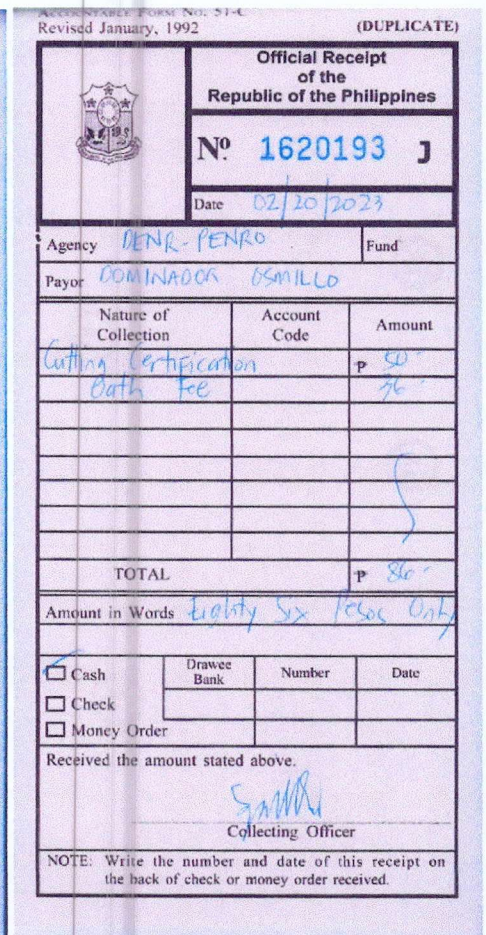 ACCOUNTABLE FORM NO. 51-C
Revised January, 1992 (DUPLICATE)
Official Receipt
of the
Republic of the Philippines
Nº 1620193 J
Date 02/20/2023
Agency DENR-PENRO Fund
Payor DOMINADOR OSMILLO
Nature of Collection Account Code Amount
Cutting Certification ₱ 50-
Oath Fee 36-
TOTAL ₱ 86-
Amount in Words Eighty Six Pesos Only
Cash Drawee Bank Number Date
Check
Money Order
Received the amount stated above.
Collecting Officer
NOTE: Write the number and date of this receipt on
the back of check or money order received.